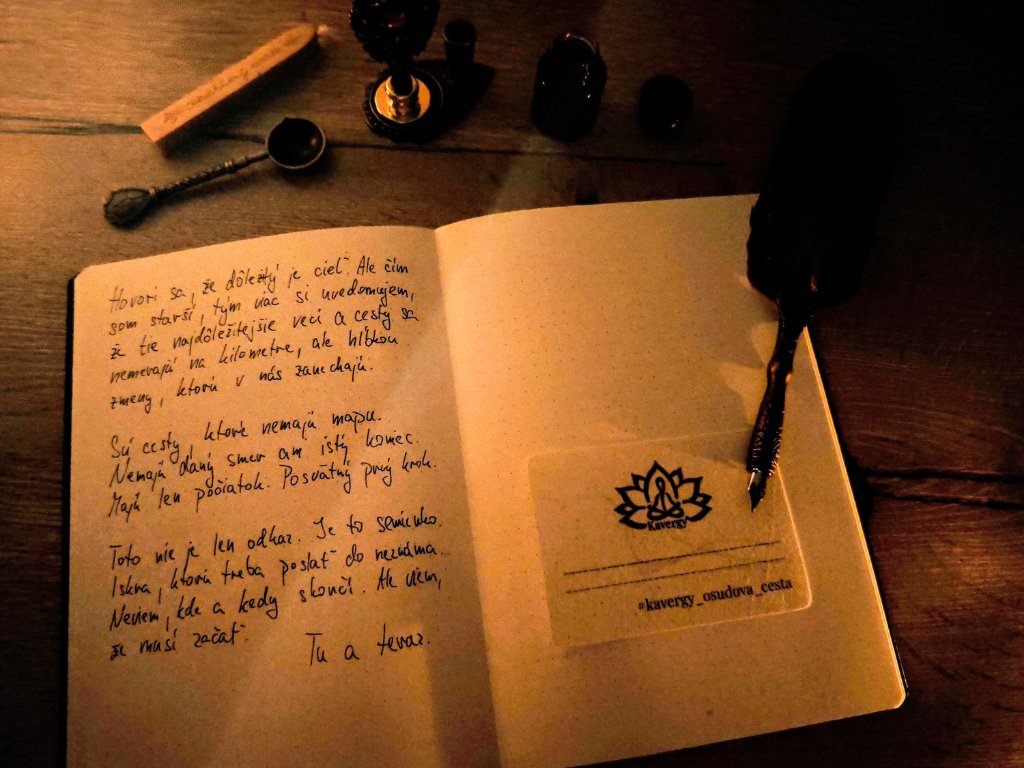 Hovorí sa, že dôležitý je cieľ. Ale čím
som starší, tým viac si uvedomujem,
že tie najdôležitejšie veci a cesty sa
nemerajú na kilometre, ale hĺbkou
zmeny, ktorú v nás zanechajú.
Sú cesty, ktoré nemajú mapu.
Nemajú daný smer ani istý koniec.
Majú len počiatok. Posvätný prvý krok.
Toto nie je len odkaz. Je to semienko.
Iskra, ktorú treba poslať do neznáma.
Neviem, kde a kedy skončí. Ale viem,
že musí začať.
Tu a teraz.
Kavergy
#kavergy_osudova_cesta